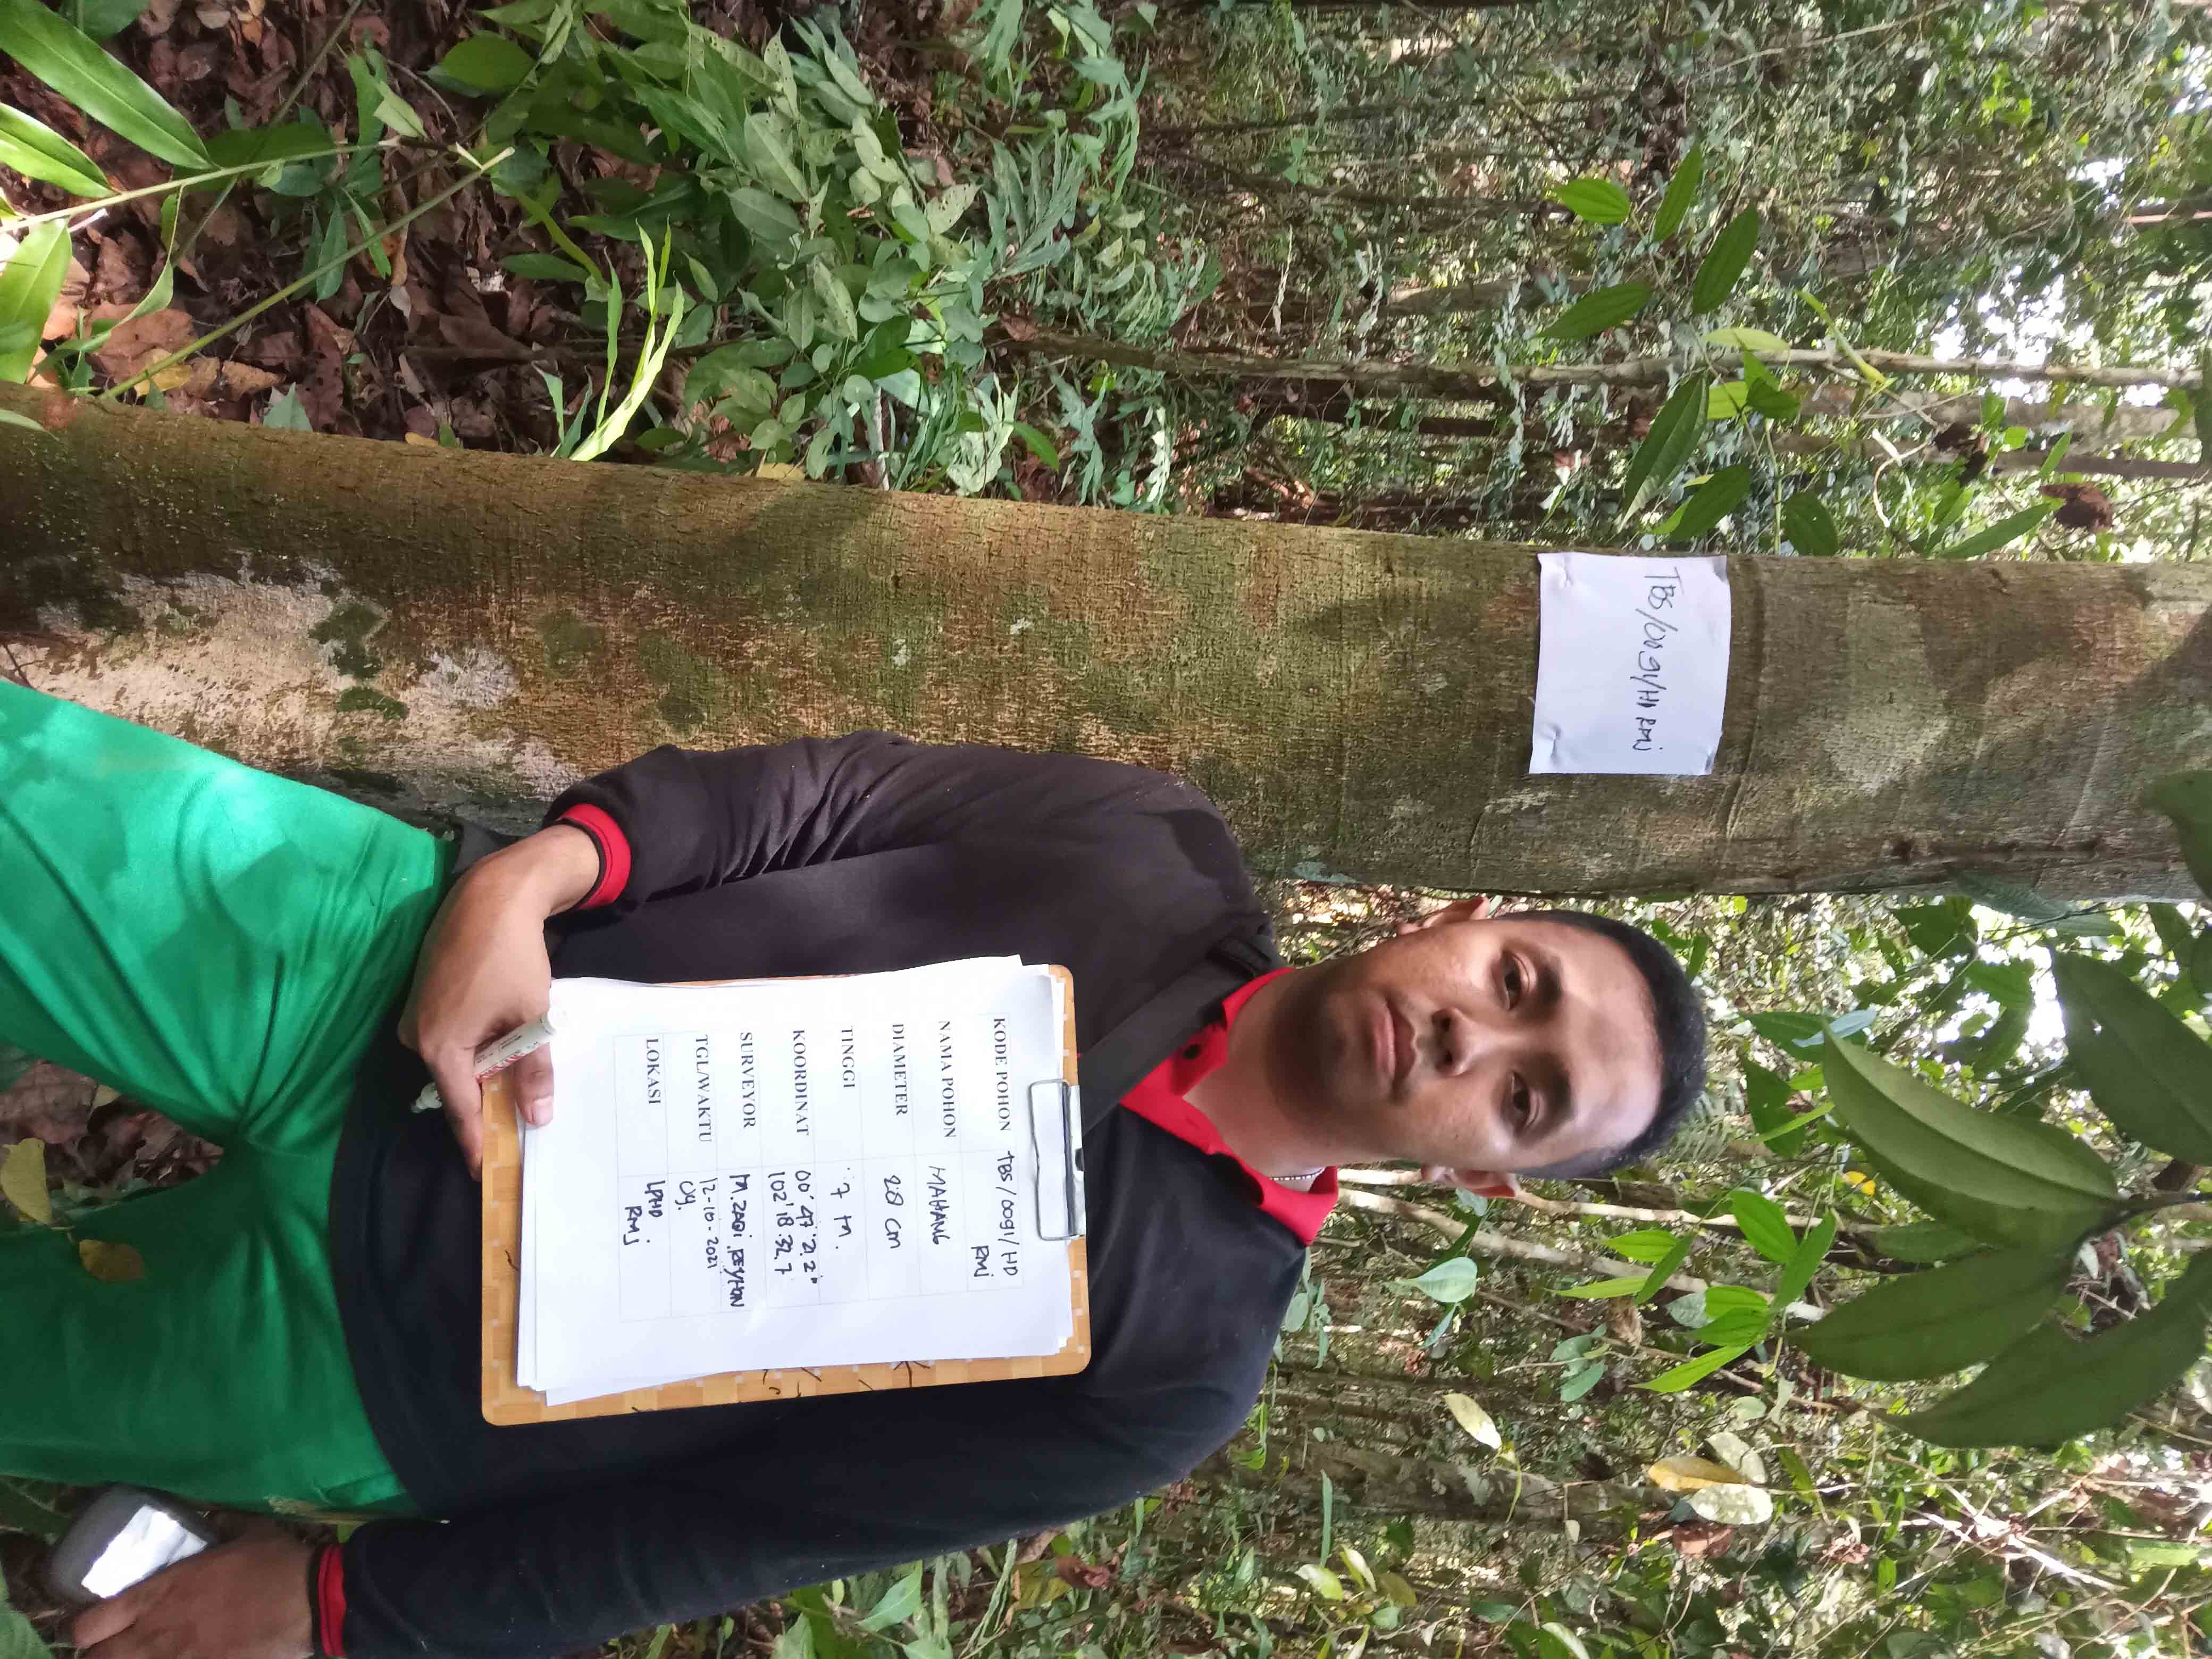 TBS/0091/HD RMj
KODE POHON TBS/0091/HD
RMj
NAMA POHON MAHANG
DIAMETER 28 cm
TINGGI 7 M.
KOORDINAT 00°47'21.2"
102°18.32.7
SURVEYOR M.ZAQI.REYHAN
TGL/WAKTU 12-10-2021
09.
LOKASI LPHD
RMj